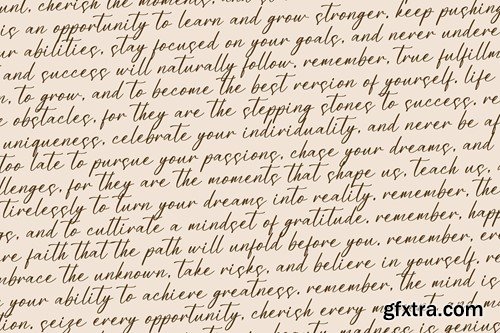 cherish the moments,
is an opportunity to learn and grow stronger, keep pushing
abilities, stay focused on your goals, and never
and success will naturally follow, remember, true
to grow, and to become the best version of yourself, life
obstacles, for they are the stepping stones to success,
uniqueness, celebrate your individuality, and never be
too late to pursue your passions, chase your dreams, and
for they are the moments that shape us, teach us,
to turn your dreams into reality, remember, the
and to cultivate a mindset of gratitude, remember,
faith that the path will unfold before you, remember,
the unknown, take risks, and believe in yourself,
your ability to achieve greatness, remember, the mind is
seize every opportunity, cherish every moment, and
madness is
gfxtra.com